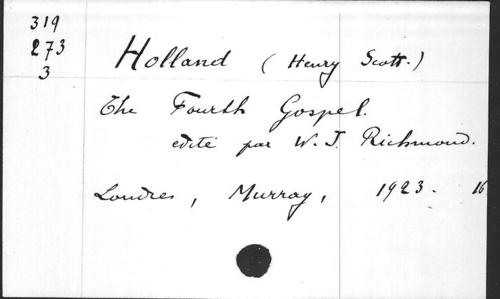 319
273
3
Holland (Henry Scott.)
The Fourth Gospel.
edité par W. J. Richmond.
Londres, Murray, 1923. 16